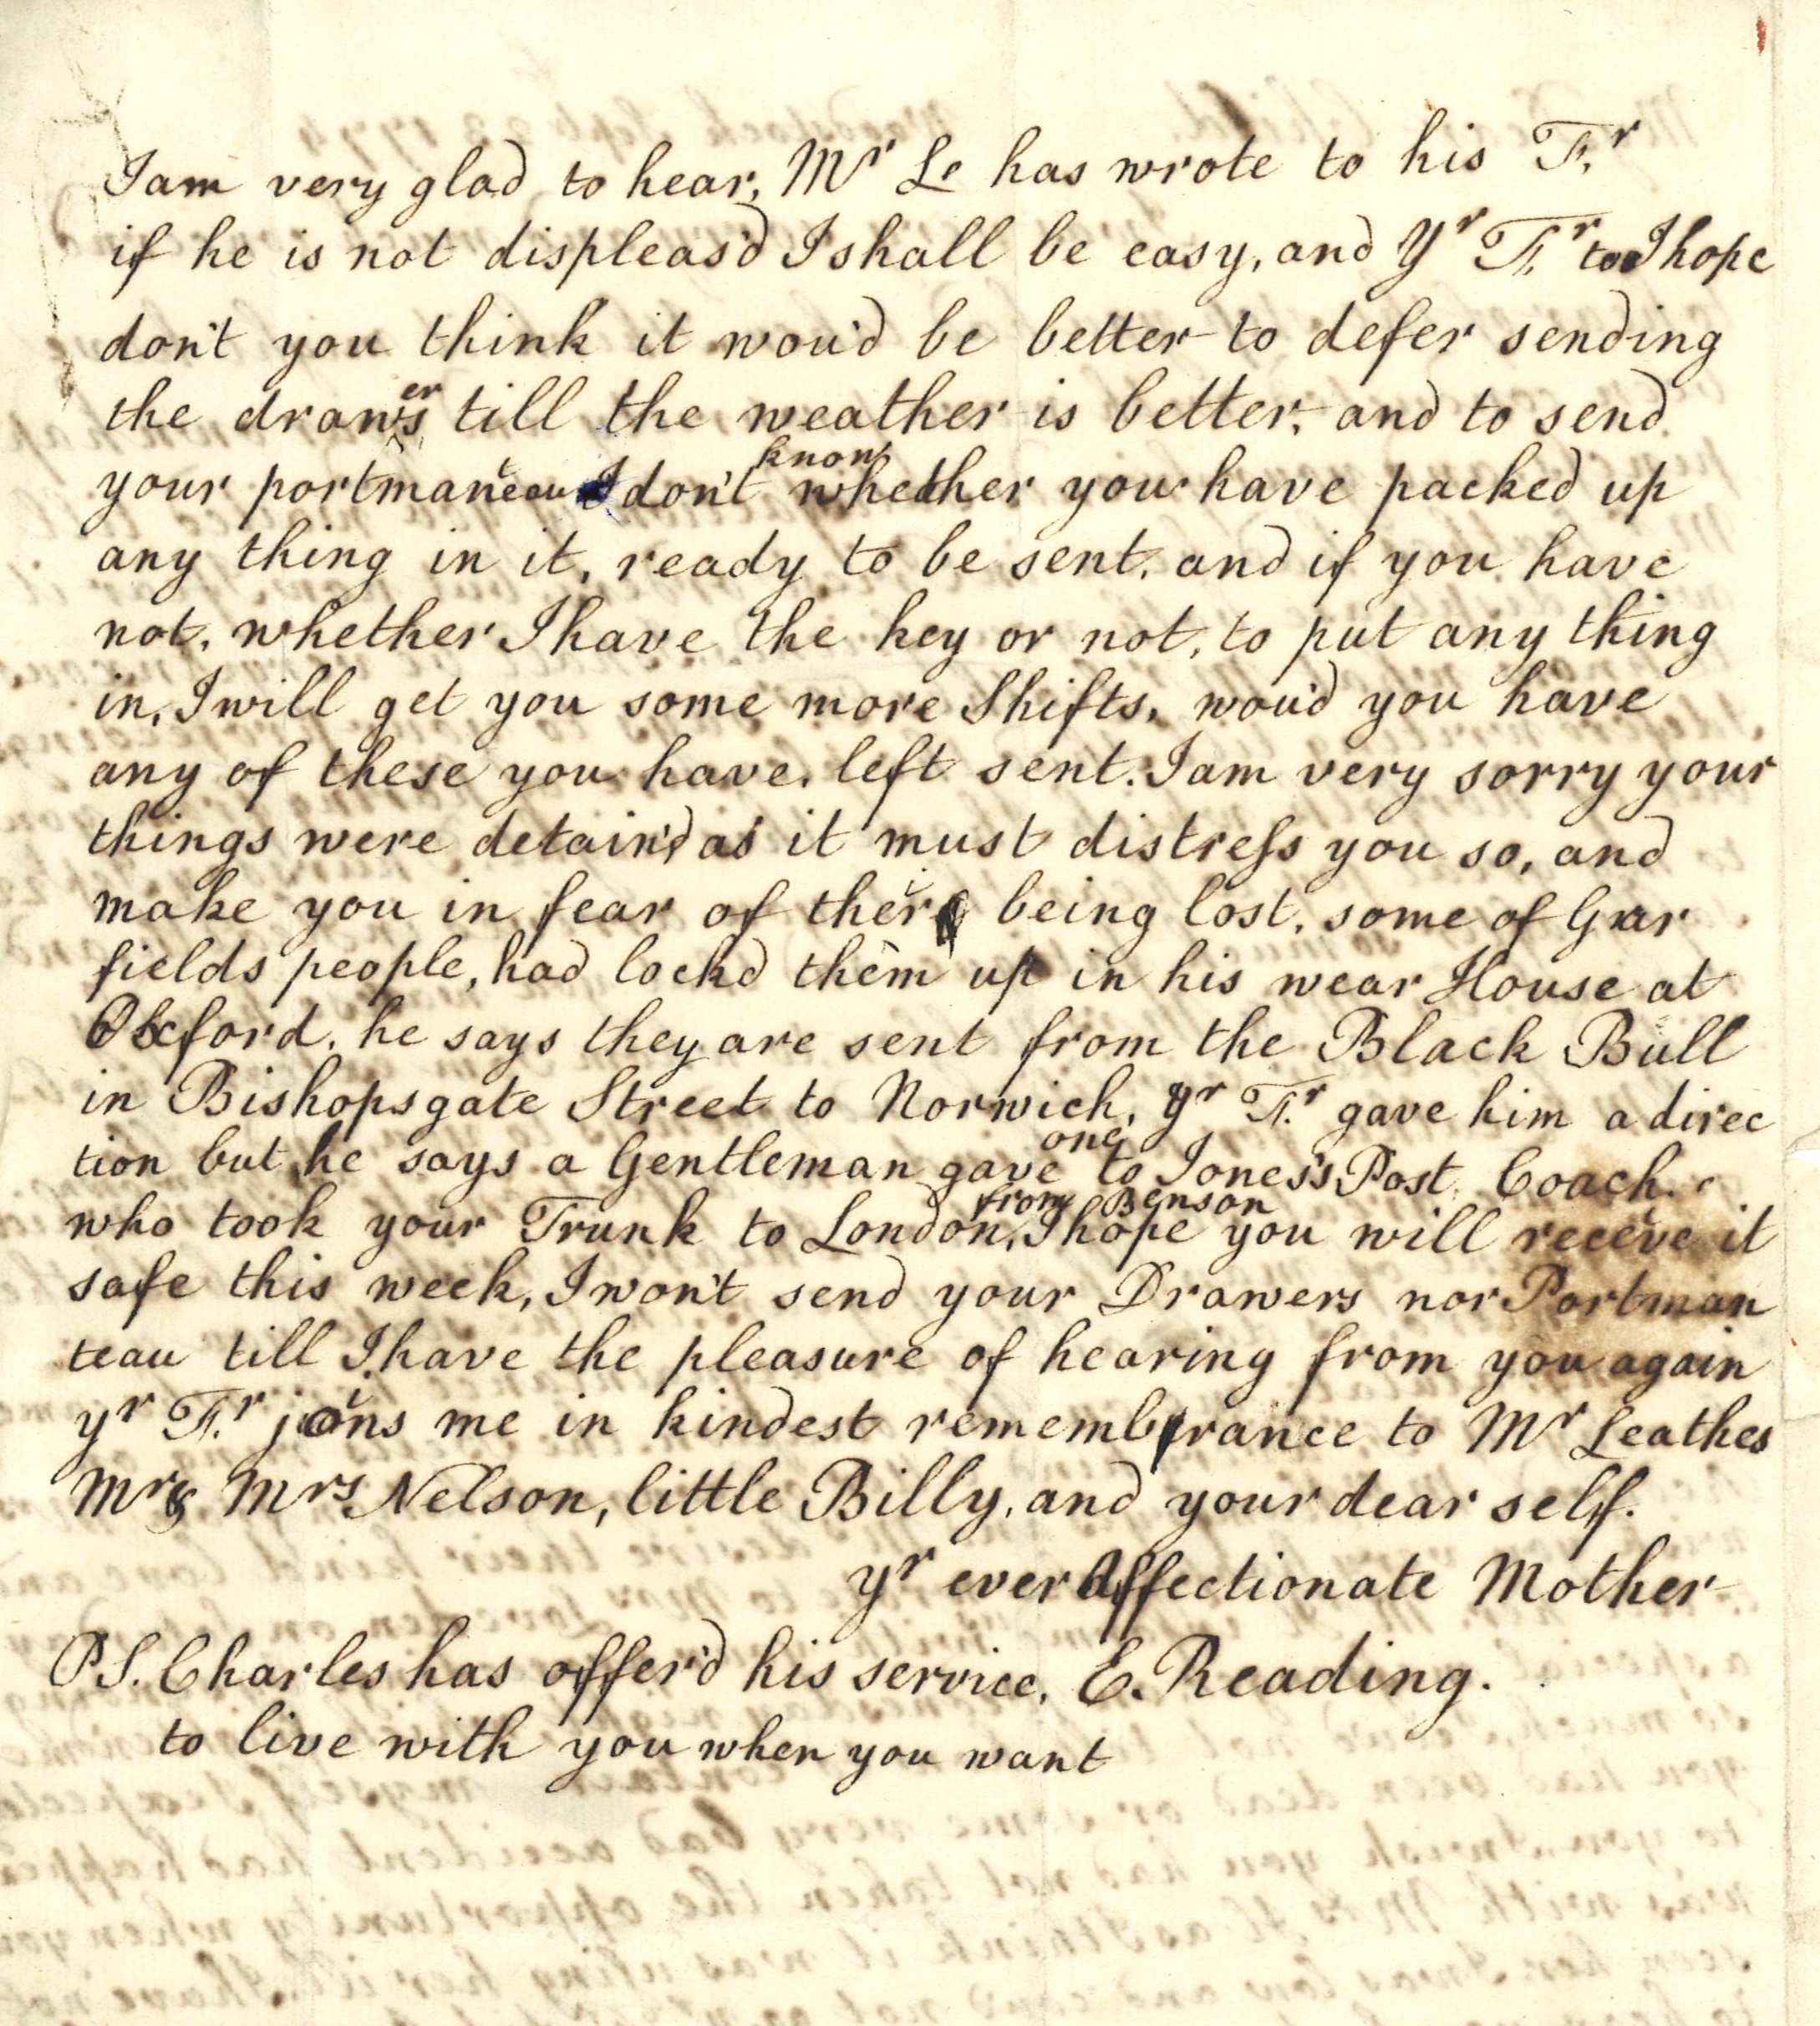 I am very glad to hear, Mr Le has wrote to his Fr
if he is not displeas'd I shall be easy, and Yr Fr too I hope
don't you think it wou'd be better to defer sending
the drawers till the weather is better, and to send
your portmaneau I don't know whether you have packed up
any thing in it, ready to be sent, and if you have
not, whether I have the key or not, to put any thing
in, I will get you some more Shifts, wou'd you have
any of these you have, left sent. I am very sorry your
things were detain'd as it must distress you so, and
make you in fear of their being lost, some of Gar
fields people, had lockd them up in his wear House at
Oxford, he says they are sent from the Black Bull
in Bishopsgate Street to Norwich, yr Fr gave him a direc
tion but he says a Gentleman gave one to Jones's Post Coach
who took your Trunk to London, from Benson I hope you will receive it
safe this week, I won't send your Drawers nor Portman
teau till I have the pleasure of hearing from you again
yr Fr joins me in kindest remembrance to Mr Leathes
Mr & Mrs Nelson, little Billy, and your dear self.
yr ever Affectionate Mother
E. Reading.
PS. Charles has offer'd his service,
to live with you when you want